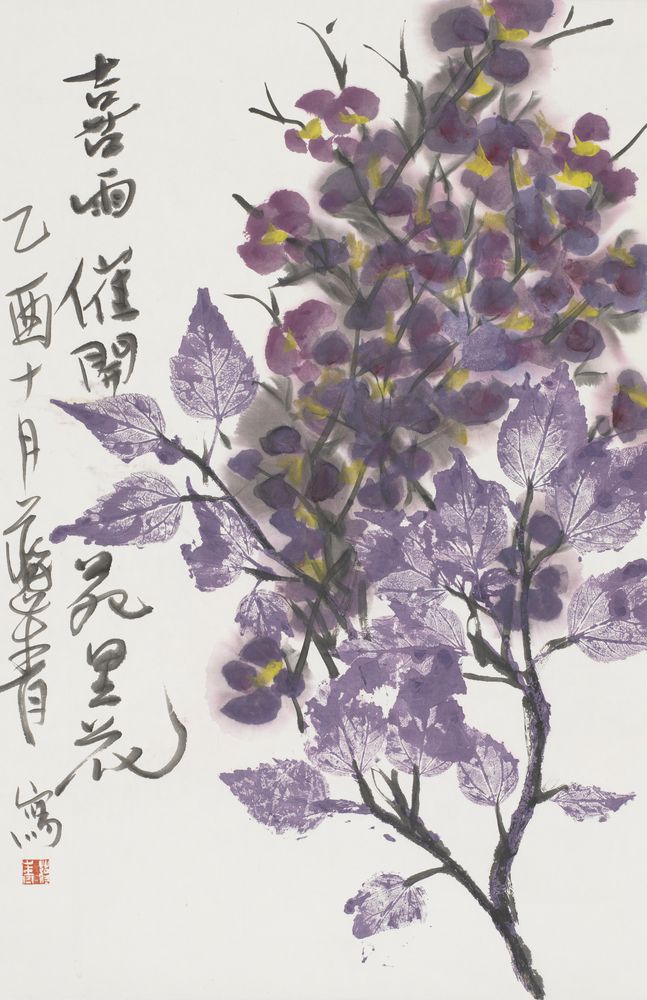 喜雨催開苑里花
乙酉十月青寫